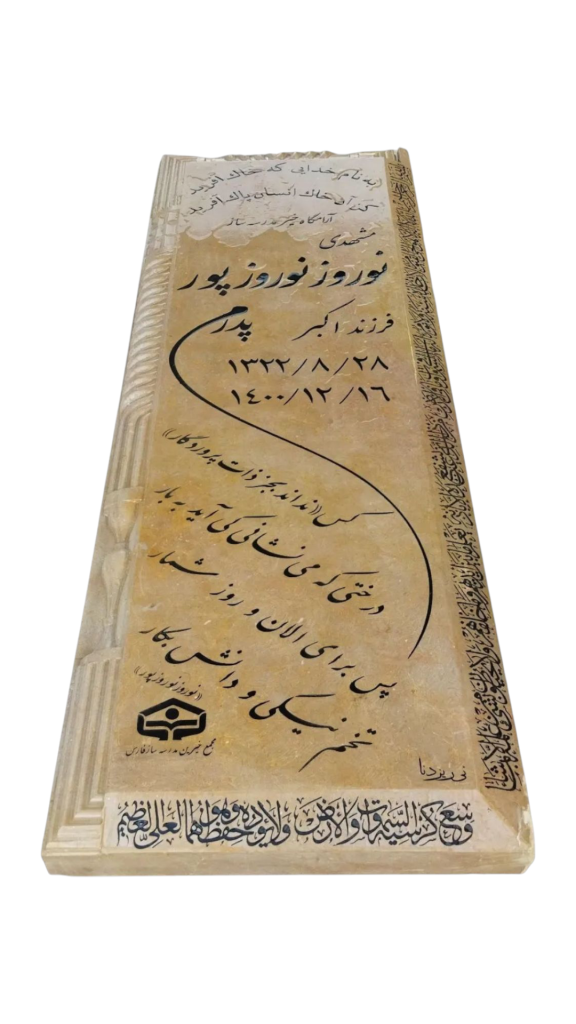 به نام خدایی که خاک آفرید
کز آن خاک انسان پاک آفرید
آرامگاه خیر مدرسه ساز
مشهدی
نوروز نوروزپور
فرزند اکبر
پدرم
۱۳۲۲/۸/۲۸
۱۴۰۰/۱۲/۱۶
کس «نداند بجز ذات پروردگار»
درختی که می نشانی کی آید به بار
پس برای الان و روز شمار
تخم نیکی و دانش بکار
«نوروز نوروزپور»
مجمع خیرین مدرسه ساز فارس
نی ریز دنا
وسع کرسیه السموات والارض ولا یؤده حفظهما وهو العلی العظیم